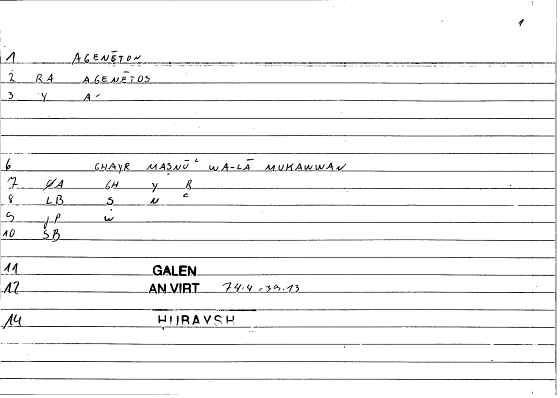 1
1 AGENĒTON
2 RA AGENĒTOS
3 Y A-
6 GHAYR MAṢNŪʿ WA-LĀ MUKAWWAN
7 ØA GH Y R
8 LB Ṣ N ʿ
9 JP W
10 SB
11 GALEN
12 AN VIRT 74.4.39.13
14 ḤUBAYSH